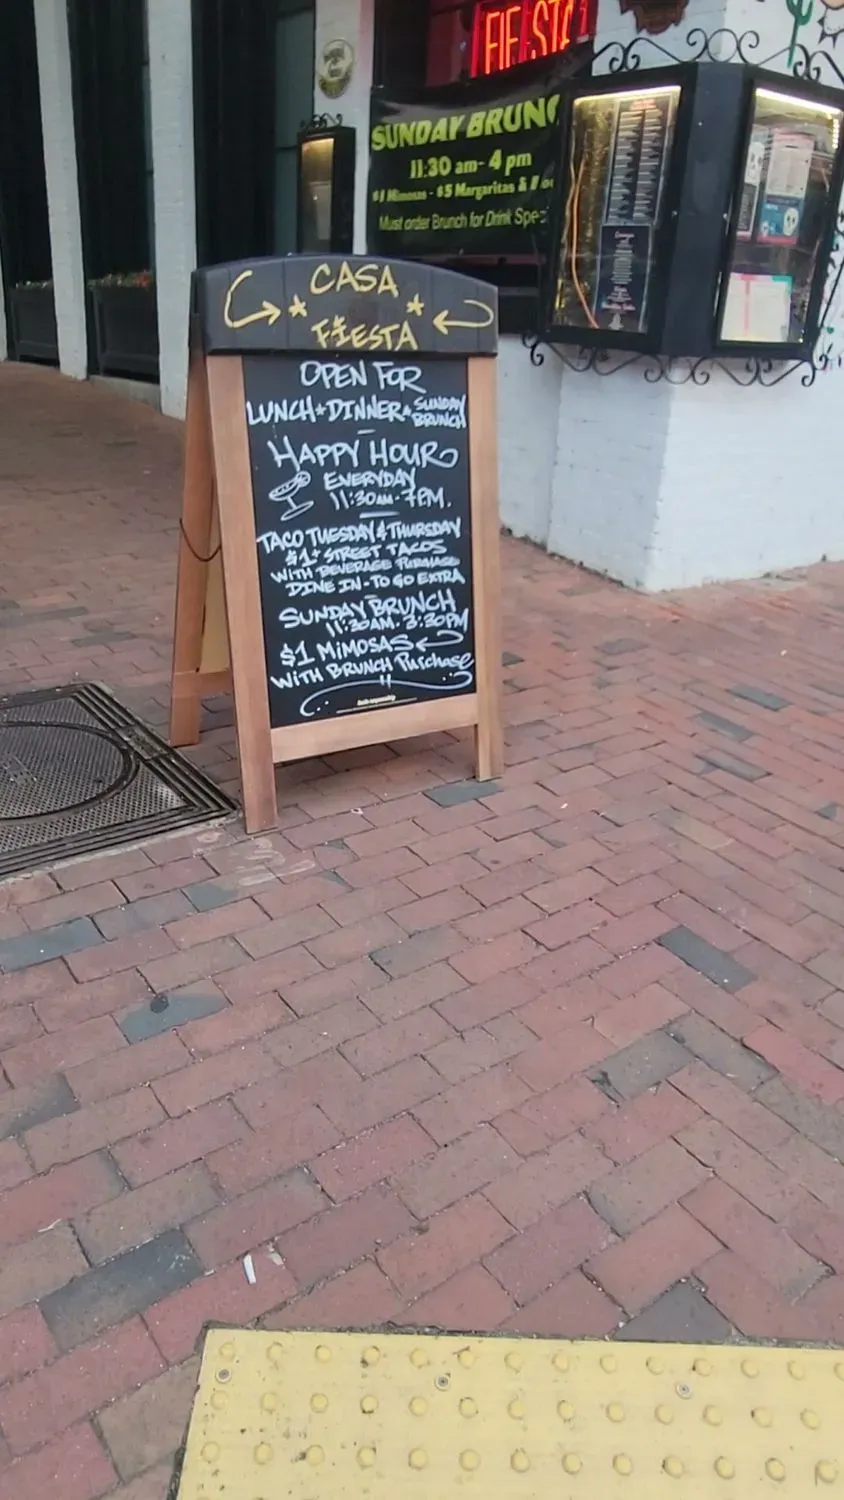 FIESTA
SUNDAY BRUNC
11:30 am- 4 pm
$1 Mimosas - $5 Margaritas &
Must order Brunch for Drink Spec
CASA
FIESTA
OPEN FOR
LUNCH DINNER SUNDAY BRUNCH
HAPPY HOUR
EVERYDAY
11:30AM-7PM.
TACO TUESDAY & THURSDAY
$1+ STREET TACOS
WITH BEVERAGE PURCHASE
DINE IN-TO GO EXTRA
SUNDAY BRUNCH
11:30AM. 3:30PM
$1 MIMOSAS
WITH BRUNCH PURCHASE